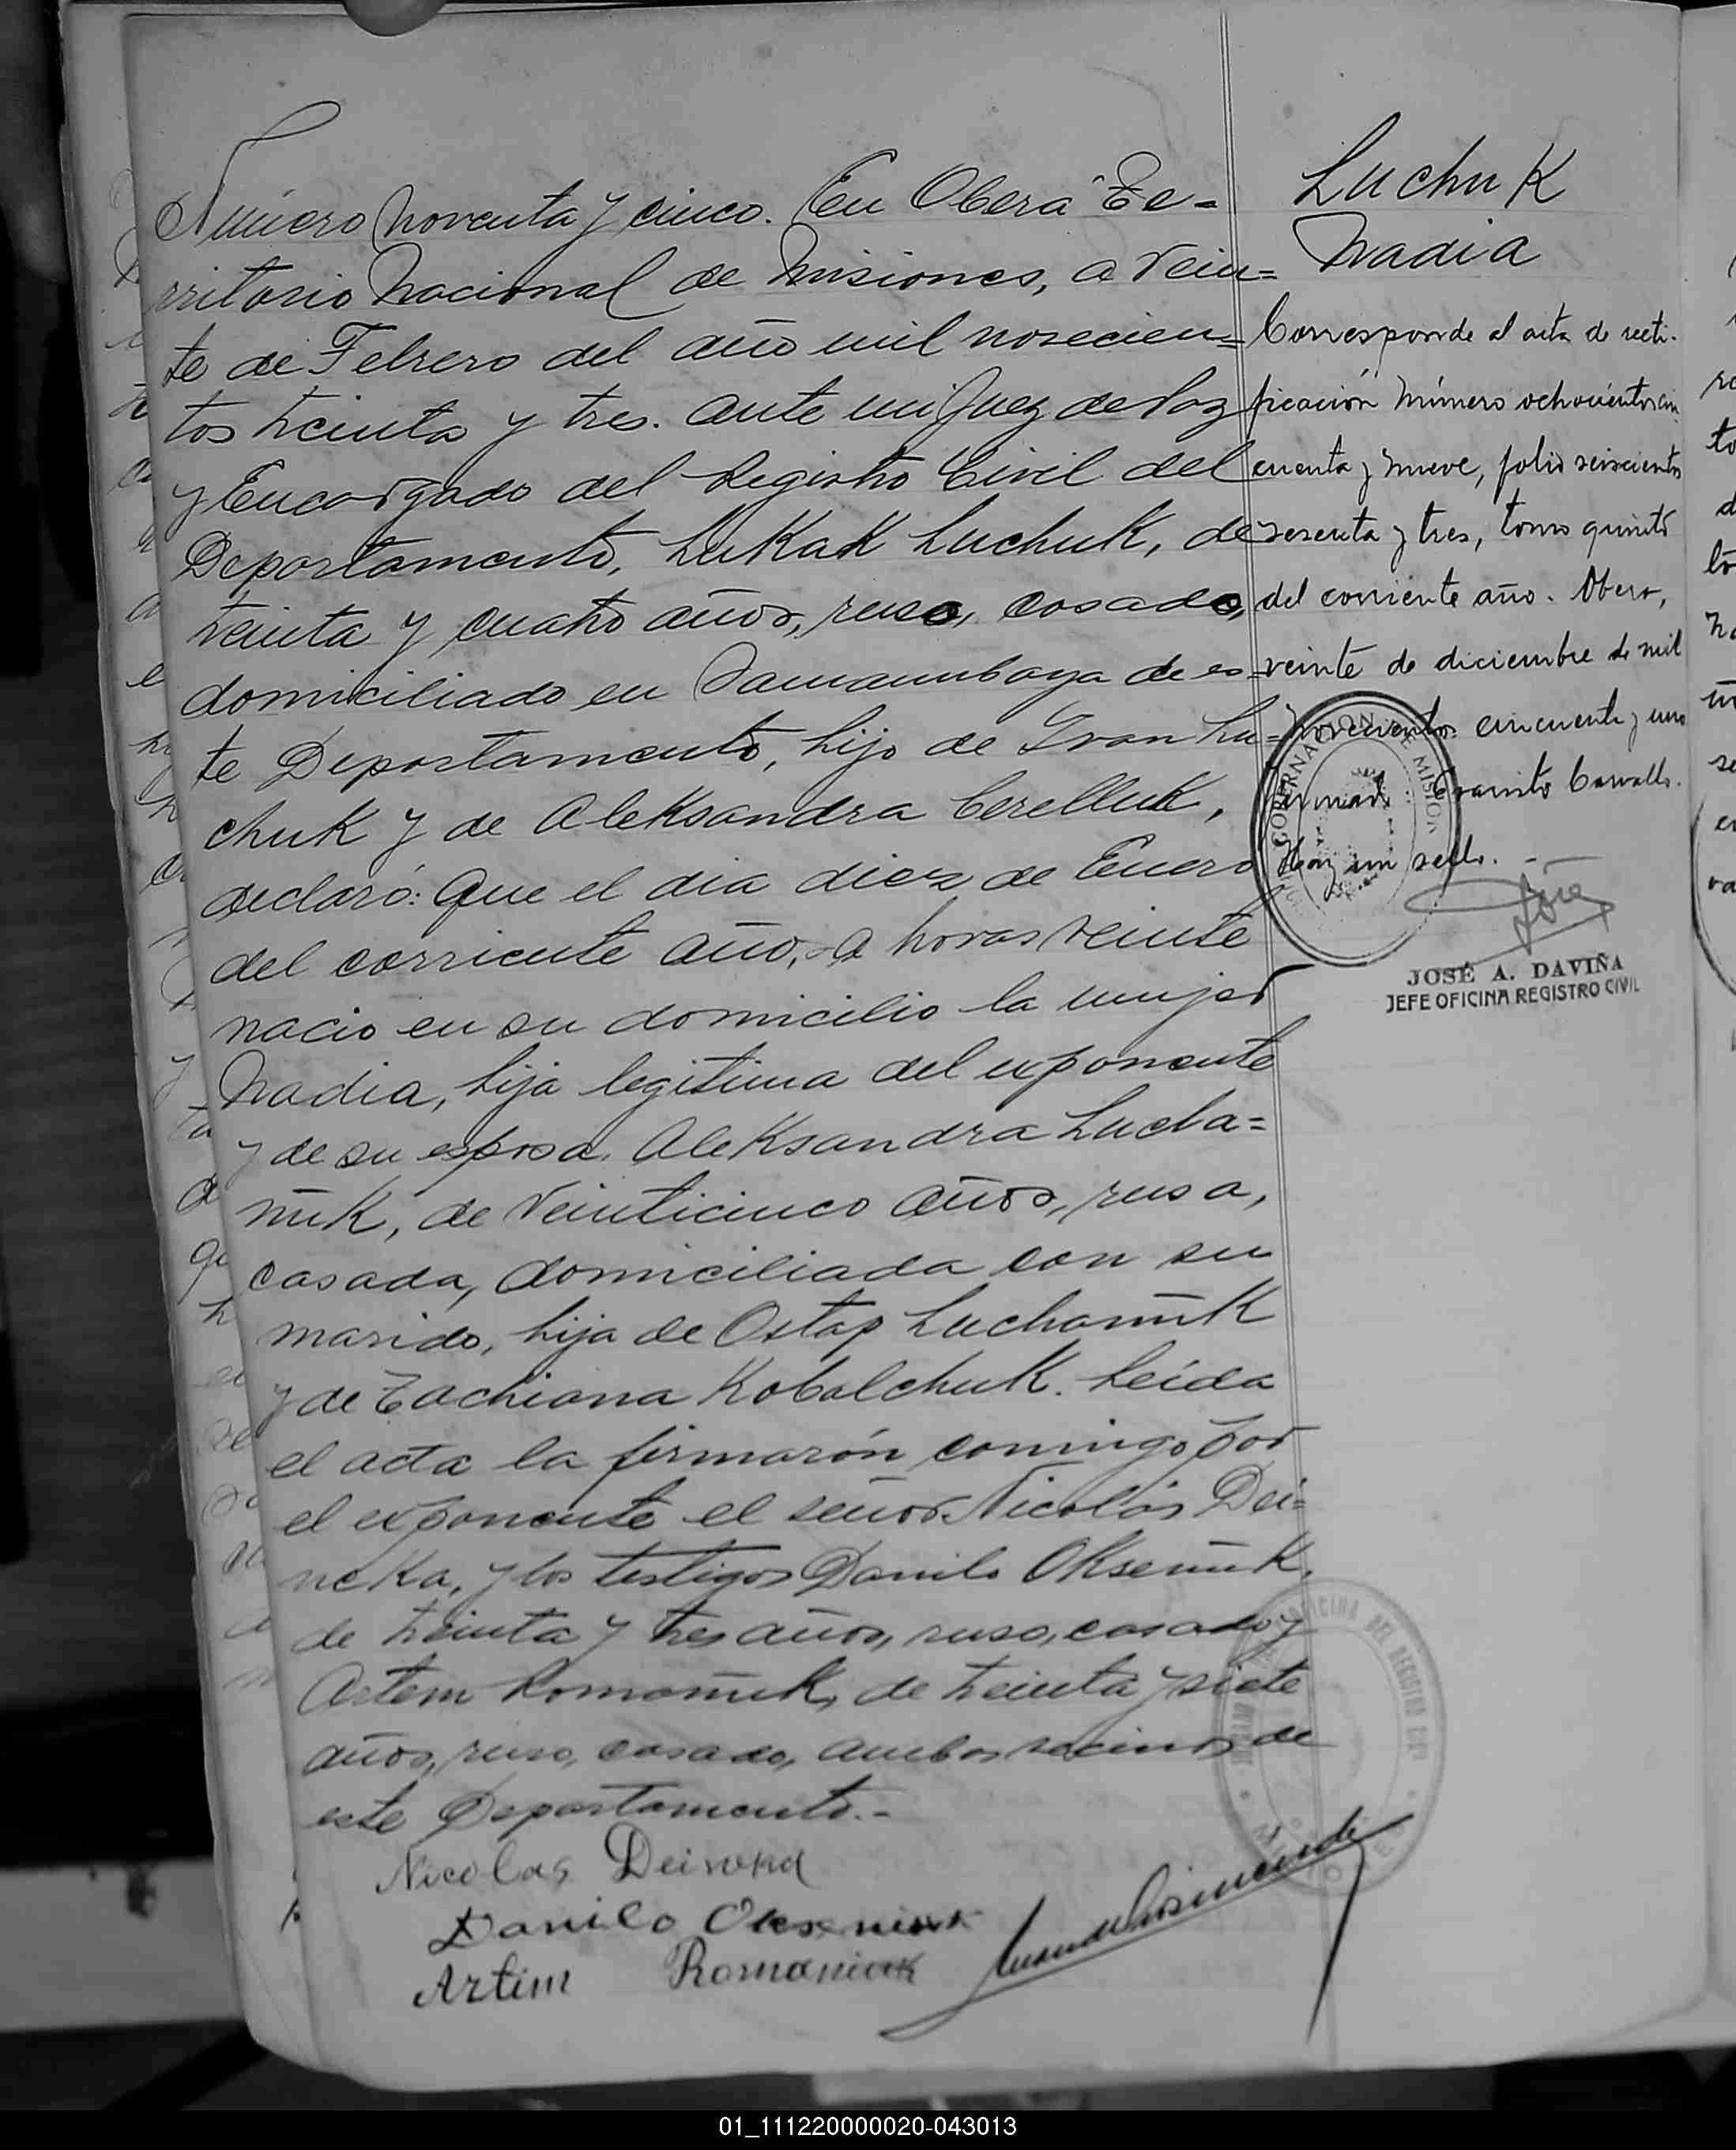 Número noventa y cinco. En Oberá Te=
rritorio Nacional de Misiones, a vein=
te de Febrero del año mil novecien=
tos treinta y tres. ante mi Juez de Paz
y Encargado del Registro Civil del
Departamento, Lukak Luchuk, de
treinta y cuatro años, ruso, casado,
domiciliado en Yamambaya de es=
te Departamento, hijo de Ivan Lu=
chuk y de Aleksandra Cerelluk,
declaró: Que el dia diez de Enero
del corriente año, a horas veinte
nacio en su domicilio la mujer
Nadia, hija legitima del exponente
y de su esposa Aleksandra Lucha=
ñuk, de veinticinco años, rusa,
casada, domiciliada con su
marido, hija de Ostap Luchañuk
y de Tachiana Kobalchuk. Leída
el acta la firmarón comingo por
el exponente el señor Nicolás Dei=
neka, y los testigos Danilo Okseñuk,
de treinta y tres años, ruso, casado y
Artem Romañuk, de treinta y siete
años, ruso, casado, ambos vecinos de
este Departamento.-
Nicolas Deineka
Danilo Okseniuk
Artim Romaniuk
Luchuk
Nadia
Corresponde al acta de recti-
ficación número ochocientos cin
cuenta y nueve, folio seiscientos
sesenta y tres, tomo quinto
del corriente año. Oberá,
veinte de diciembre de mil
novecientos cincuenta y uno
firmado Evaristo Carvallo.
Hay un sello.-
GOBERNACION DE MISIONES
JOSÉ A. DAVIÑA
JEFE OFICINA REGISTRO CIVIL
OFICINA DEL REGISTRO CIVIL
01_111220000020-043013